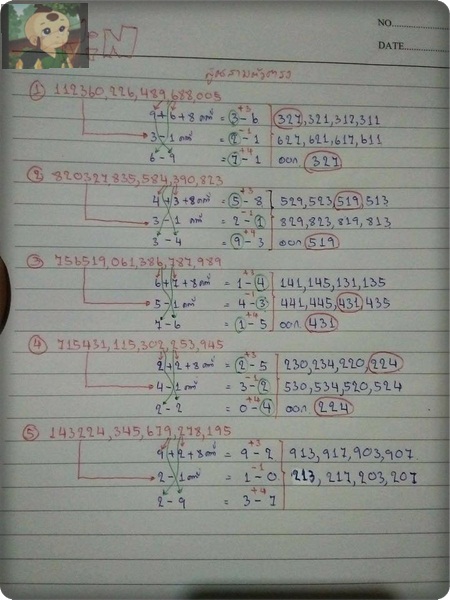 NO.
DATE
① 112360,226,489,688,005
9+6+8คงที่ = 3-6 327,321,317,311
3-1 คงที่ = 2-1 627,621,617,611
6-9 = 7-1 ออก 327
② 820327,835,584,390,823
4+3+8คงที่ = 5-8 529,523,519,513
3-1 คงที่ = 2-1 829,823,819,813
3-4 = 9-3 ออก 519
③ 756519,061,386,787,989
6+7+8คงที่ = 1-4 141,145,131,135
5-1 คงที่ = 4-3 441,445,431,435
7-6 = 1-5 ออก 431
④ 715431,115,302,253,945
2+2+8คงที่ = 2-5 230,234,220,224
4-1 คงที่ = 3-2 530,534,520,524
2-2 = 0-4 ออก 224
⑤ 143224,345,679,278,195
9+2+8คงที่ = 9-2 913,917,903,907
2-1 คงที่ = 1-0 213,217,203,207
2-9 = 3-7